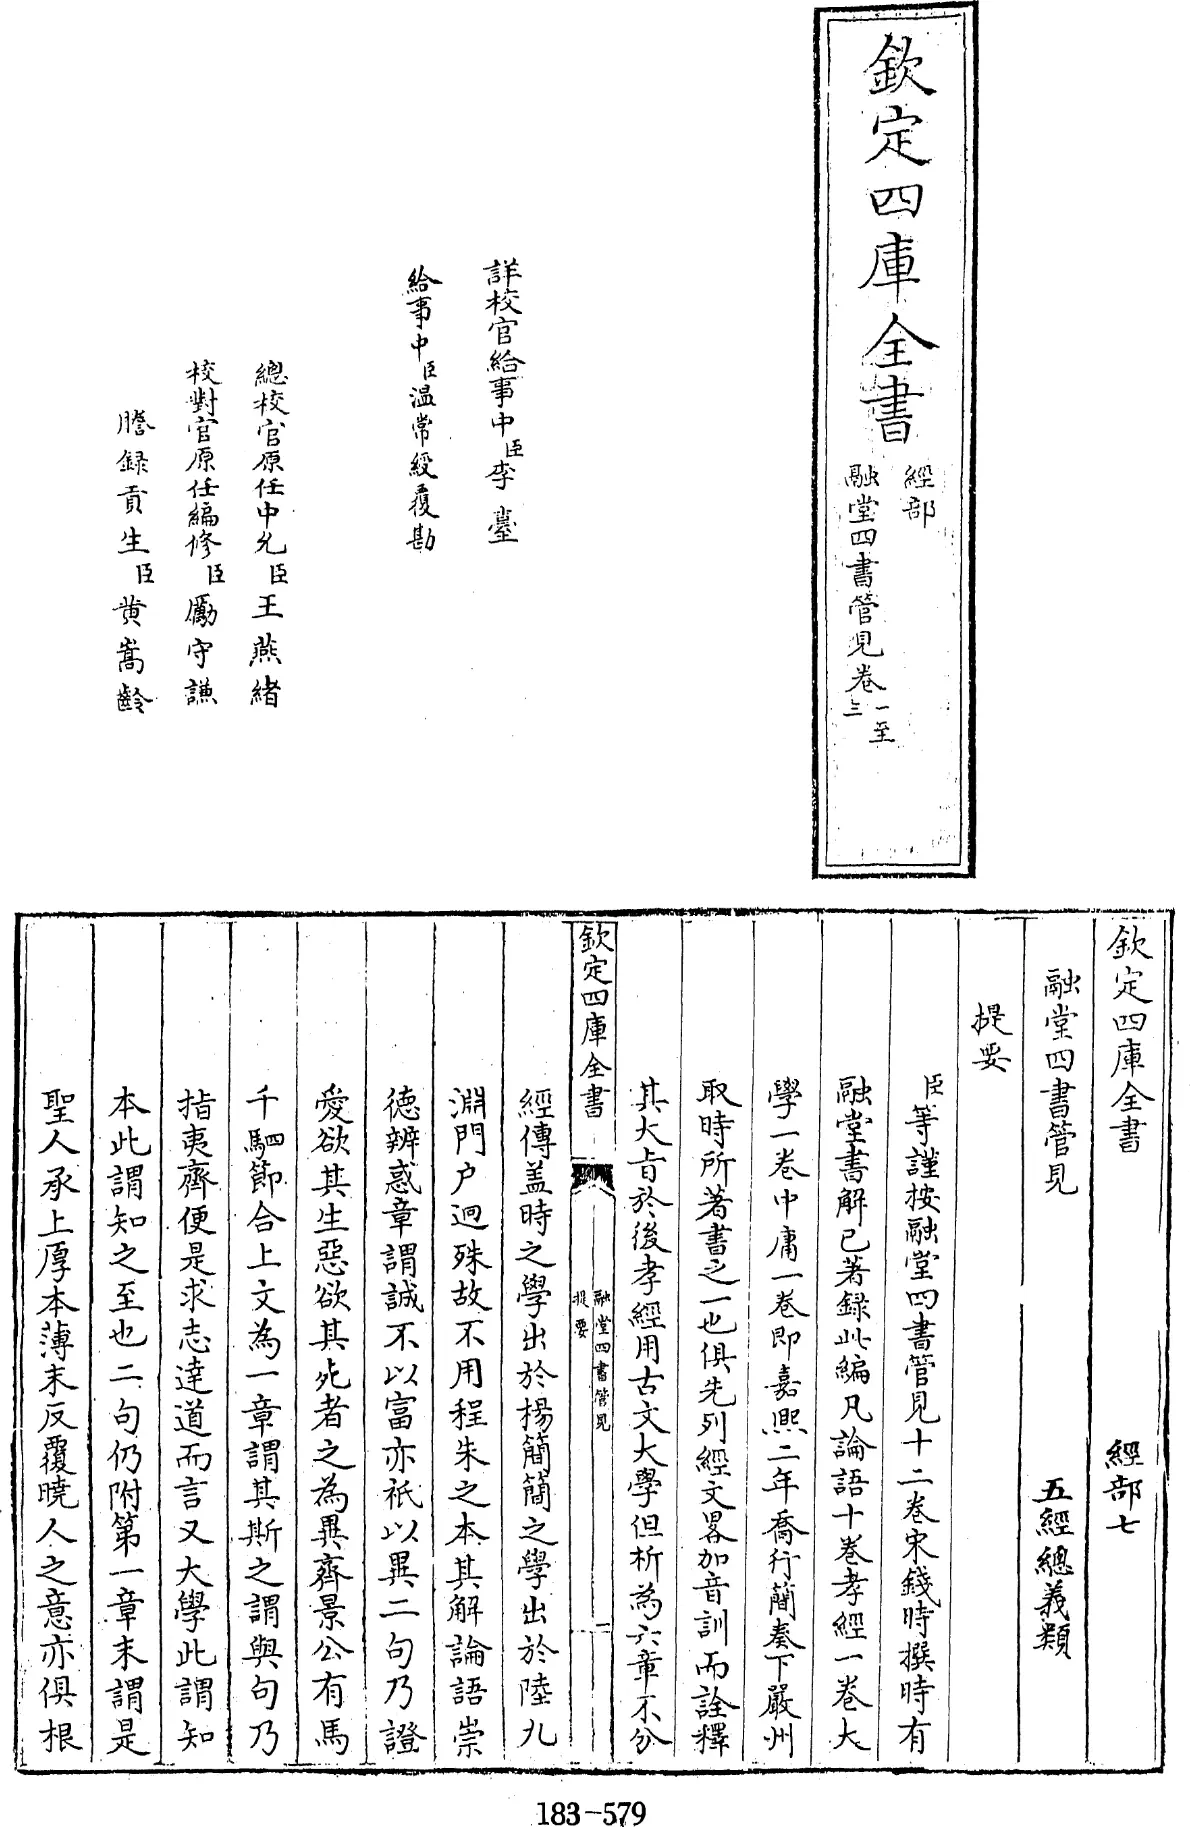 欽定四庫全書
經部
融堂四書管見卷一至
三
詳校官給事中臣李臺
給事中臣温常綬覆勘
總校官原任中允臣王燕緒
校對官原任編修臣勵守謙
謄録貢生臣黄嵩齡
欽定四庫全書 經部七
融堂四書管見 五經總義類
提要
臣等謹按融堂四書管見十二卷宋錢時撰時有
融堂書解已著録此編凡論語十卷孝經一卷大
學一卷中庸一卷即嘉熙二年喬行簡奏下嚴州
取時所著書之一也俱先列經文畧加音訓而詮釋
其大旨於後孝經用古文大學但析為六章不分
欽定四庫全書
融堂四書管見
提要
一
經傳盖時之學出於楊簡簡之學出於陸九
淵門户迥殊故不用程朱之本其解論語崇
徳辨惑章謂誠不以富亦祇以異二句乃證
愛欲其生惡欲其死者之為異齊景公有馬
千駟節合上文為一章謂其斯之謂與句乃
指夷齊便是求志達道而言又大學此謂知
本此謂知之至也二句仍附第一章末謂是
聖人承上厚本薄末反覆曉人之意亦俱根
183-579